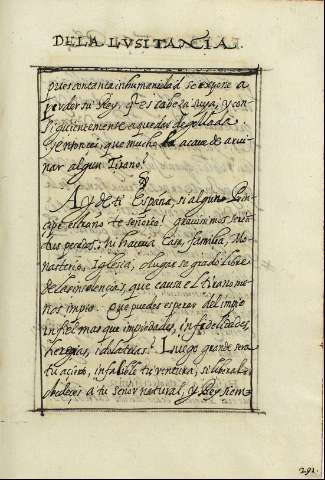 DE LA LVSITANIA.
pues con tanta inhumanidad se expone a
perder su Rey, q̃ es cabeza suya; y con
siguientemente a quedar degollada.
Y entonces, que mucho la acave de arrui
nar algun Tirano?
Ay de ti España, si algun Prin
cipe estraño te señoreó! gravissimos seran
tus pecados; tu hacienda Casa, familia, Mo
nasterio, Iglesia, o lugar sagrado libre
de las violencias, que causa el tirano me
nos impio. Que puedes esperar del impio
infiel mas que impiedades, infidelidades,
heregias, idolatrias? Luego grande sera
tu acierto, infalible tu ventura, si liberal
obedeces a tu señor natural, y Rey siem
291.